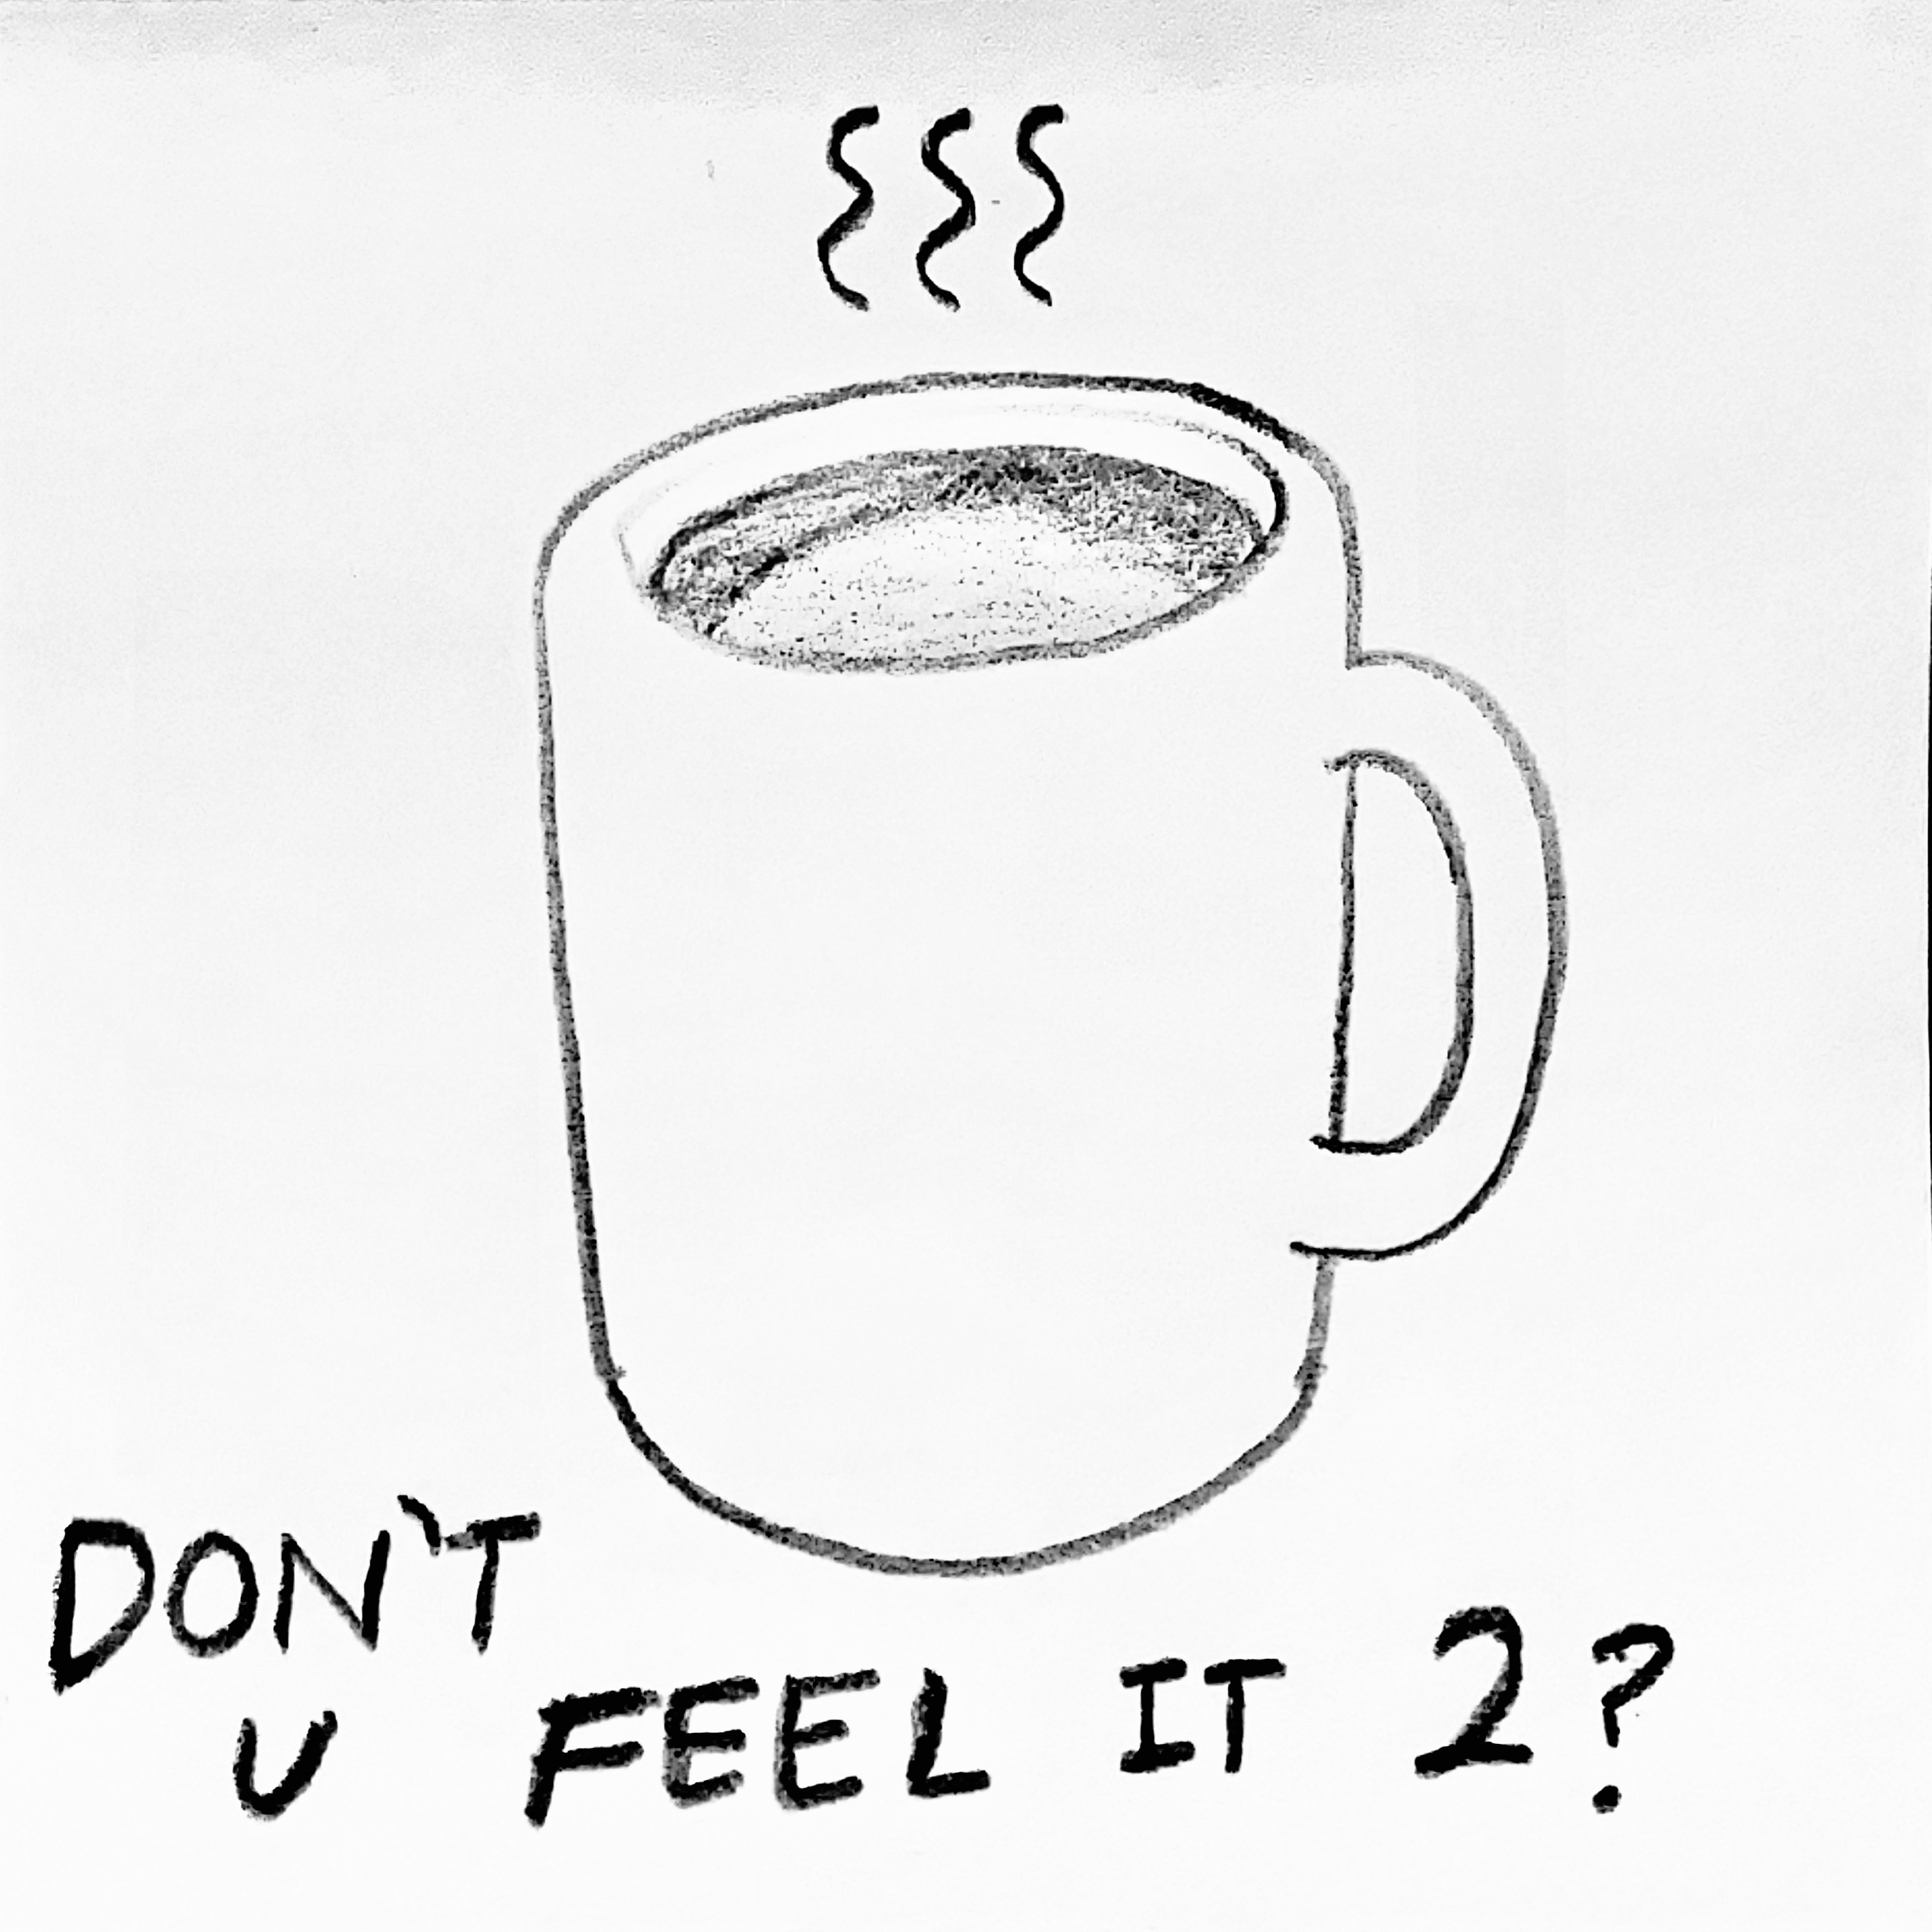 DON'T
U FEEL IT 2?